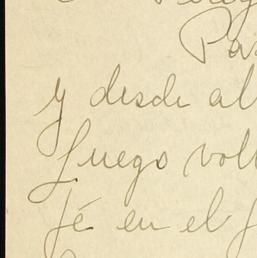 Pa
y desde al
fuego vol
fé en el